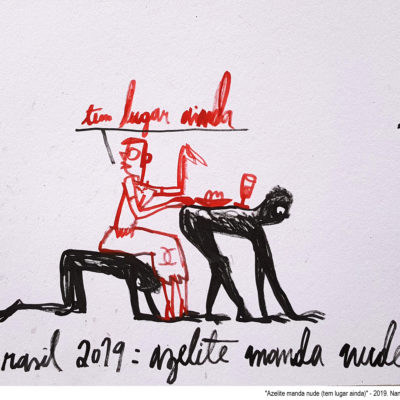 tem lugar ainda
rasil 2019: azelite manda nude
"Azelite manda nude (tem lugar ainda)" - 2019. Nan